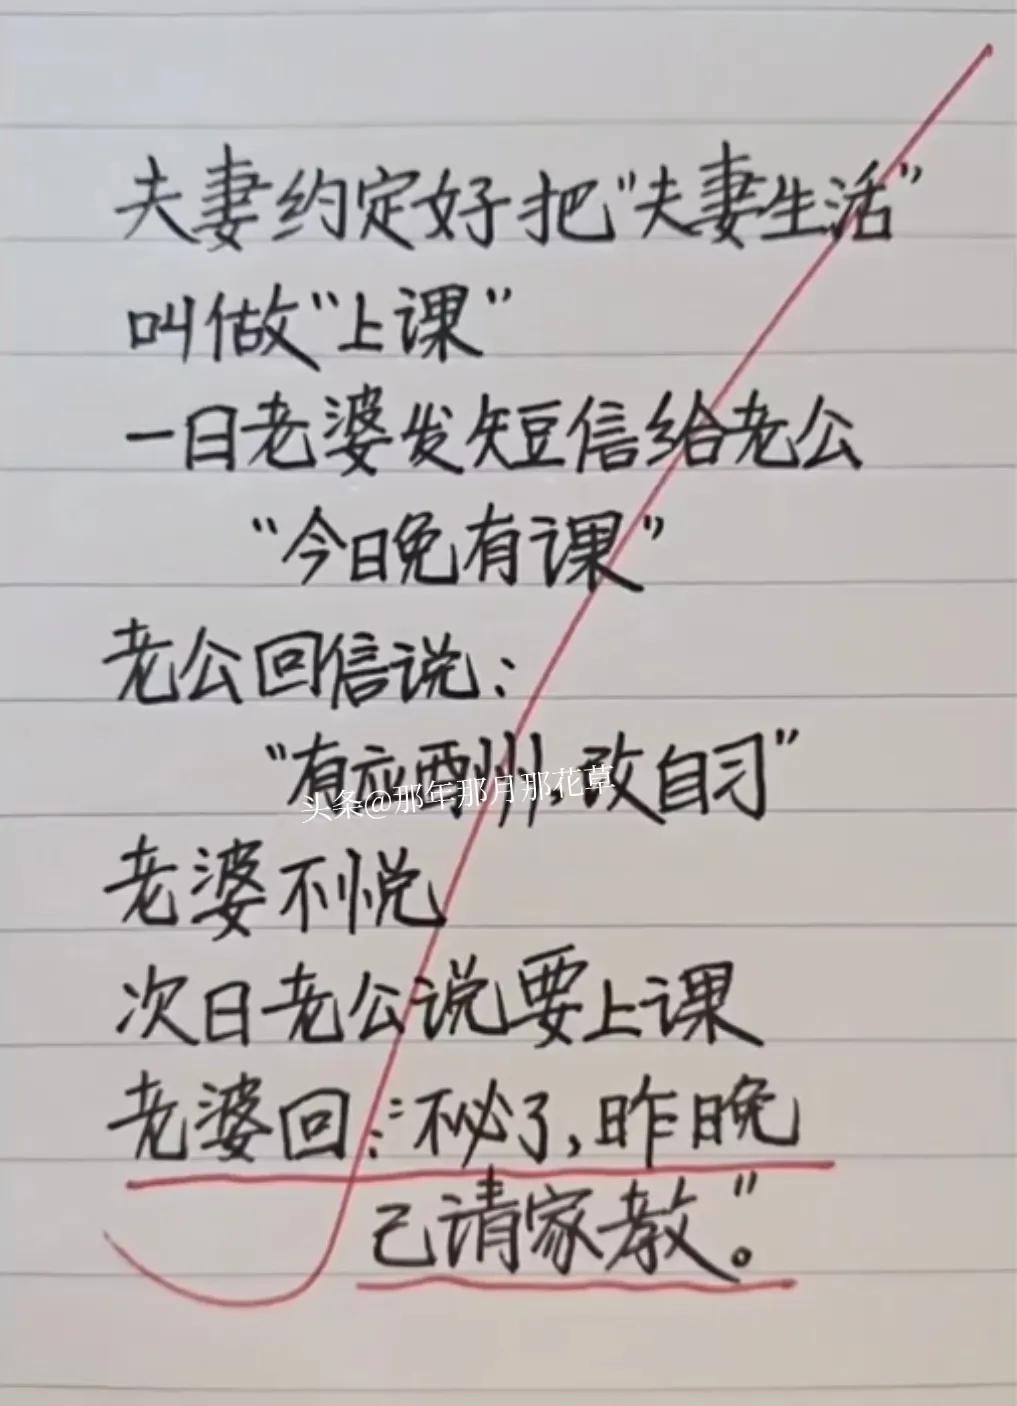 夫妻约定好把“夫妻生活”
叫做“上课”
一日老婆发短信给老公
“今日晚有课”
老公回信说：
“有应酬，改自习”
头条@那年那月那花草
老婆不悦
次日老公说要上课
老婆回：“不必了，昨晚
己请家教”。